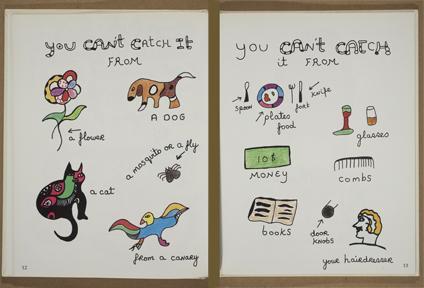 you CAN'T CATCH It
FROM
A DOG
a flower
a mosquito or a fly
a cat
from a canary
12
you CAN'T CATCH
it FROM
spoon
plates
food
fork
knife
glasses
10$
MONEY
COMBS
books
door
knobs
your hairdresser
13